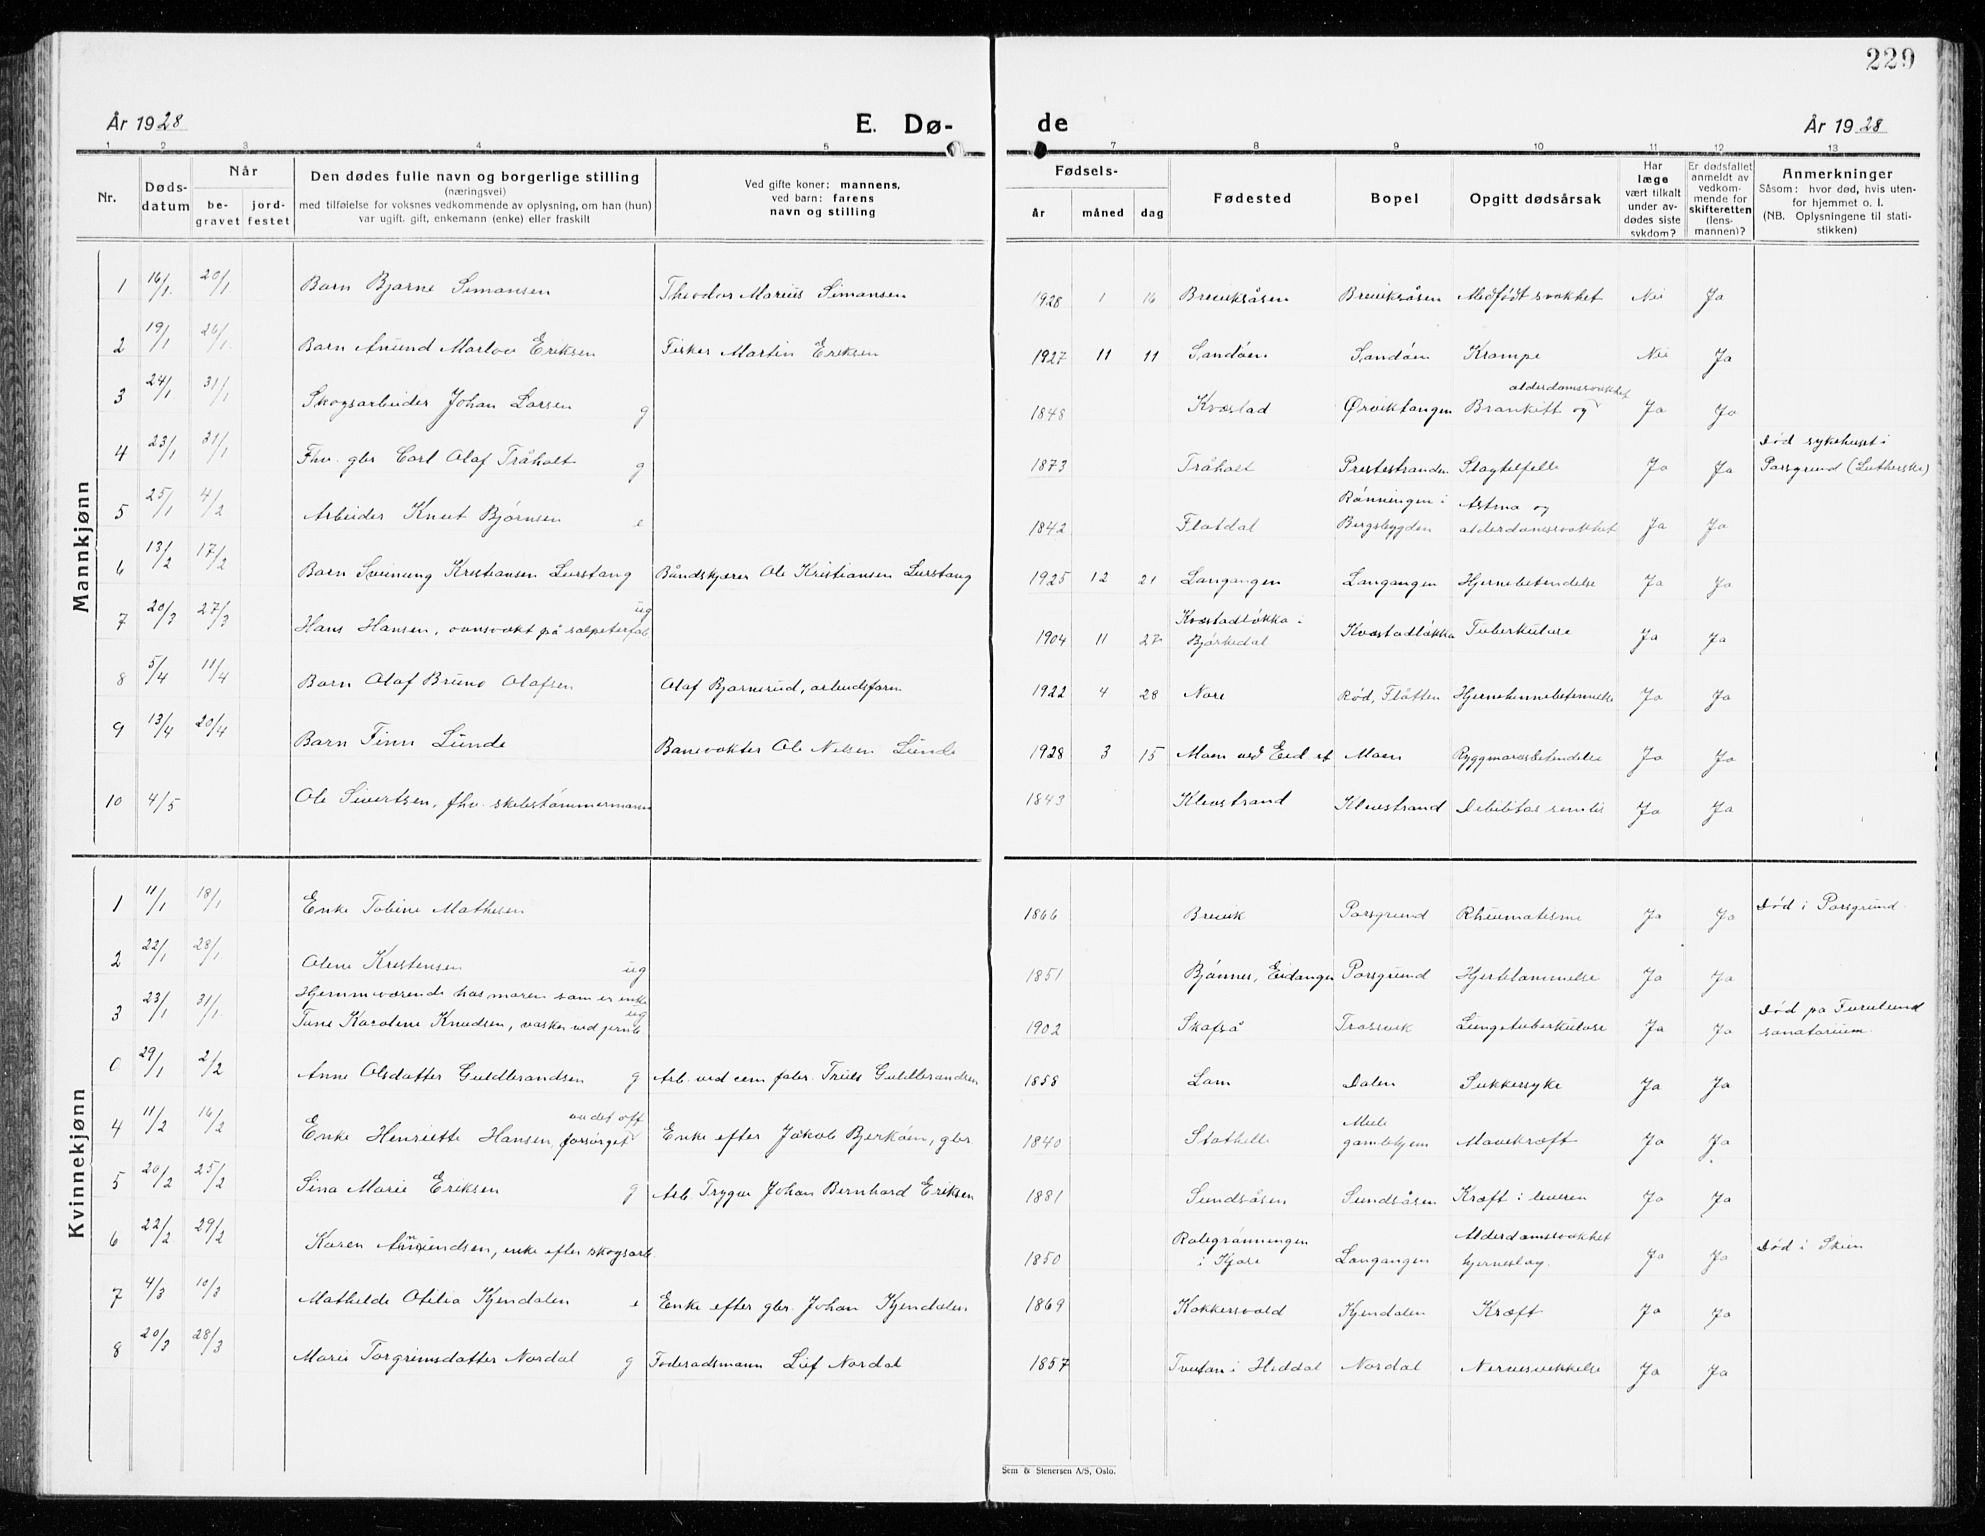 229
År 1928 E. Dø- de År 1928
1 2 3 4 5 7 8 9 10 11 12 13
Nr. Døds-datum Når be-gravet jord-festet Den dødes fulle navn og borgerlige stilling (næringsvei) med tilføielse for voksnes vedkommende av oplysning, om han (hun) var ugift, gift, enkemann (enke) eller fraskilt Ved gifte koner: mannens, ved barn: farens navn og stilling Fødsels- år måned dag Fødested Bopel Opgitt dødsårsak Har læge vært tilkalt under av-dødes siste sykdom? Er dødsfallet anmeldt av vedkom-mende for skifteretten (lens-mannen)? Anmerkninger Såsom: hvor død, hvis uten-for hjemmet o. l. (NB. Oplysningene til stati-stikken)
Mannkjønn
1 16/1 20/1 Barn Bjarne Simonsen Theodor Marius Simonsen 1928 1 16 Breviksåsen Breviksåsen Medfødt svakhet Nei Ja
2 19/1 26/1 Barn Anund Eriksen Fisker Martin Eriksen 1927 11 11 Sandøen Sandøen Krampe Nei Ja
3 24/1 31/1 Skogsarbeider Johan Larsen g 1848 Kvæstad Ørviktangen Bronkitt og alderdomssvakhet Ja Ja
4 23/1 31/1 Fhv. gbr Carl Olaf Tråholt g 1873 Tråholt Prestestranden Slagtilfelle Ja Ja Død sykehuset i Porsgrund (Lutherske)
5 25/1 4/2 Arbeider Knut Bjørnsen e 1842 Flatdal Rønningen i Bergsbygden Astma og alderdomssvakhet Ja Ja
6 13/2 17/2 Barn Sveinung Kristiansen Lurstang Båndskjærer Ole Kristiansen Lurstang 1925 12 21 Langangen Langangen Hjernebetendelse Ja Ja
7 20/3 27/3 Hans Hansen, ovnsvakt på salpeterfab. ug 1904 11 27 Kvæstadløkka i Bjørkedal Kvæstadløkka Tuberkulose Ja Ja
8 5/4 11/4 Barn Olaf Bruno Olafsen Olaf Bjarnerud, arbeidsform 1922 4 28 Nore Rød, Flåtten Hjernehinnebetennelse Ja Ja
9 13/4 20/4 Barn Finn Lunde Banevokter Ole Nilsen Lunde 1928 3 15 Moen ved Eid st Moen Ryggmarvsbetendelse Ja Ja
10 4/5 Ole Sivertsen, fhv. skibstømmermann 1843 Klevstrand Klevstrand Debilitas senilis Ja Ja
Kvinnekjønn
1 11/1 18/1 Enke Tobine Mathisen 1866 Brevik Porsgrund Rheumatisme Ja Ja Død i Porsgrund.
2 22/1 28/1 Olene Kristensen ug 1851 Bjønnes, Eidanger Porsgrund Hjertelammelse Ja Ja
3 23/1 31/1 Hjemmeværende hos moren som er enke Tone Karoline Knudsen, vasker ved jernb ug 1902 Skafså Trosvik Lungetuberkulose Ja Ja Død på Furulund sanatorium.
0 29/1 2/2 Anne Olsdatter Guldbrandsen g Arb. ved cem fabr. Truls Guldbrandsen 1858 Lom Dalen Sukkersyke Ja Ja
4 11/2 16/2 Enke Henriette Hansen, forsørget av det off Enke efter Jakob Bjerkøen, gbr 1840 Stathelle Mule gamlehjem Mavekræft Ja Ja
5 20/2 25/2 Sina Marie Eriksen g Arb. Trygve Johan Bernhard Eriksen 1881 Sundsåsen Sundsåsen Kræft i leveren Ja Ja
6 22/2 29/2 Karen Amundsen, enke efter skogsarb. 1850 i Kjose Langangen Alderdomsvakhet hjerneslag. Ja Ja Død i Skien
7 4/3 10/3 Mathilde Otilia Kjendalen e Enke efter gbr. Johan Kjendalen 1869 Kokkersvold Kjendalen Kræft Ja Ja
8 20/3 28/3 Marie Torgrimsdatter Nordal g Føderådsmann Lief Nordal 1857 Tveitan i Heddal Nordal Nervesvekkelse Ja Ja
Sem & Stenersen A/S, Oslo.